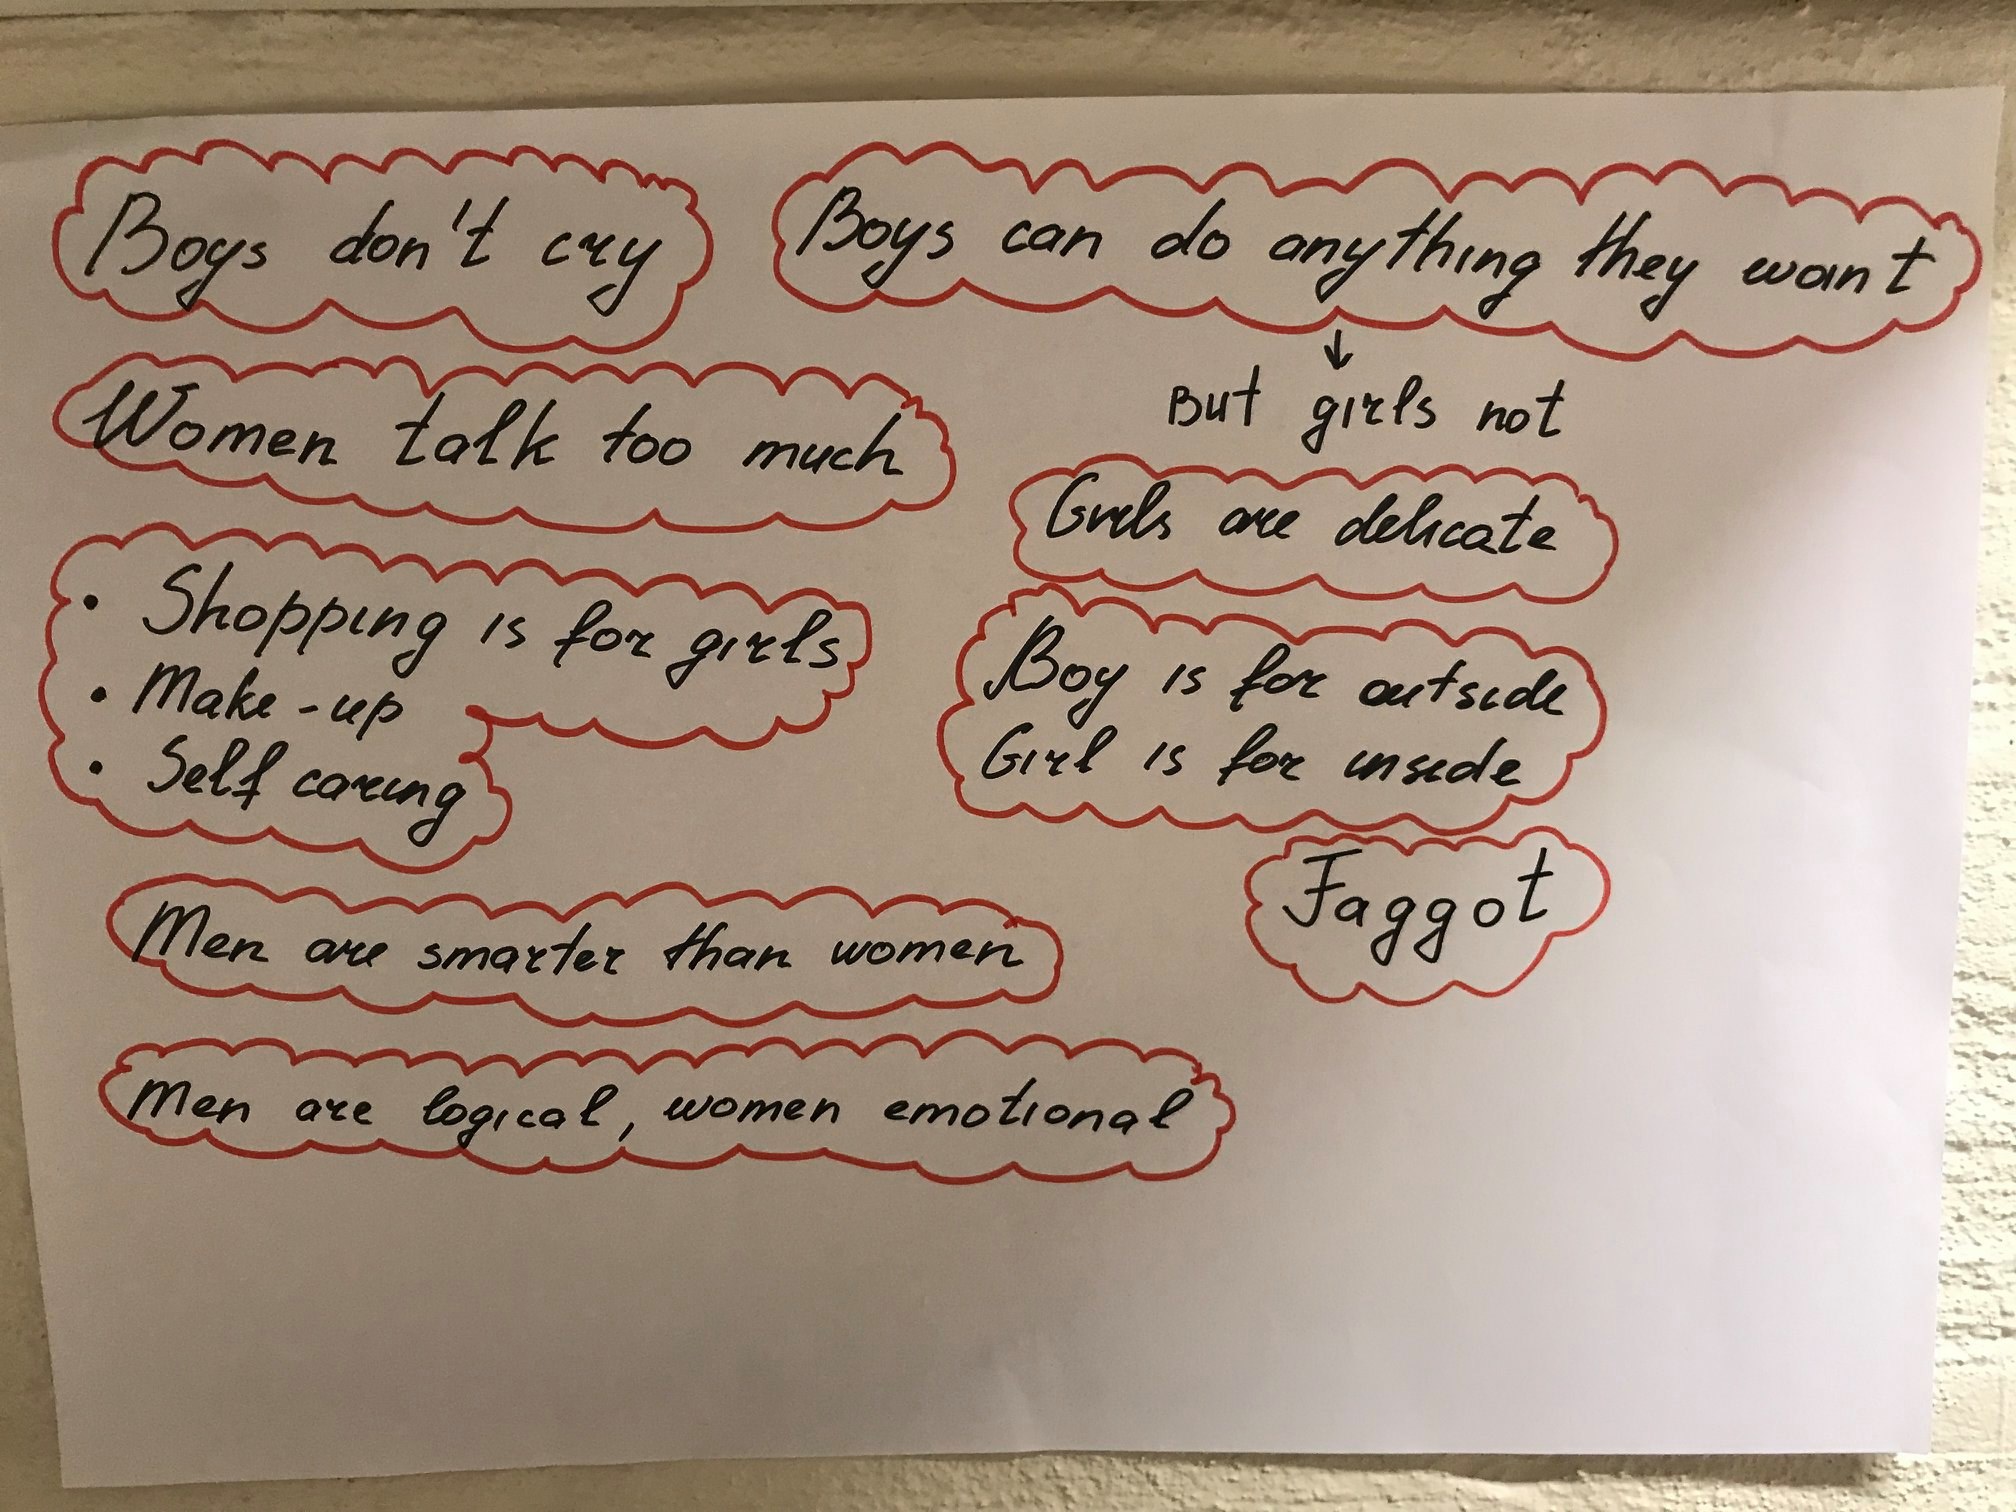 Boys don't cry
Boys can do anything they want
↓
But girls not
Women talk too much
Girls are delicate
• Shopping is for girls
• Make-up
• Self caring
Boy is for outside
Girl is for inside
Faggot
Men are smarter than women
Men are logical, women emotional